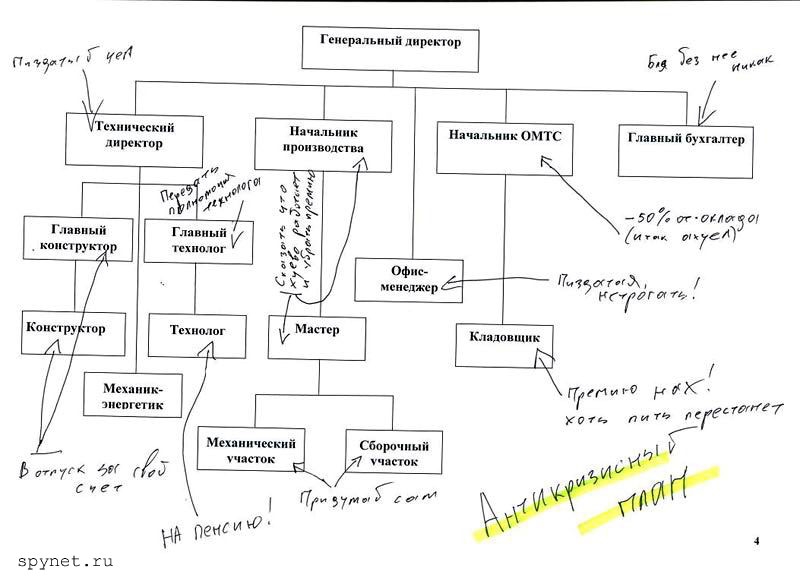 Генеральный директор
Пиздатый чел
Бля без нее
никак
Технический
директор
Начальник
производства
Начальник ОМТС
Главный бухгалтер
Передать
полномочия
технолога
Сказать что
хуево работает
и убрать премию
-50% от оклада
(итак охуел)
Главный
конструктор
Главный
технолог
Офис-
менеджер
Пиздатая,
нетрогать!
Конструктор
Технолог
Мастер
Кладовщик
Механик-
энергетик
Премию нах!
хоть пить перестанет
Механический
участок
Сборочный
участок
В отпуск за свой
счет
На пенсию!
Придумаю сам
Антикризисный
план
4
spynet.ru